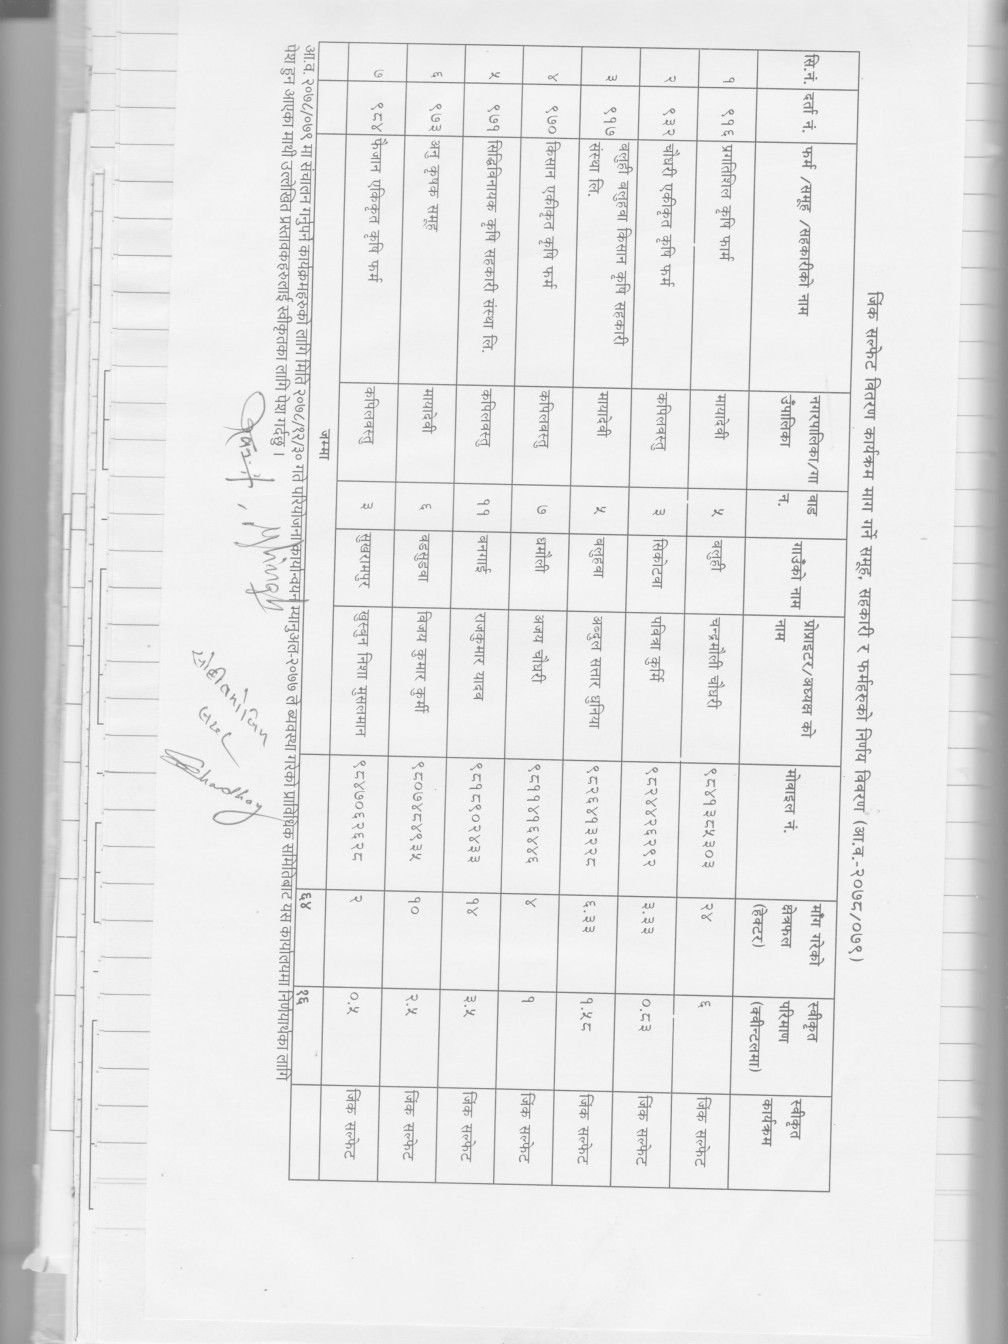 जिंक सल्फेट वितरण कार्यक्रम माग गर्ने समूह, सहकारी र फर्महरुको निर्णय विवरण (आ.व.-२०७८/०७९)
सि.नं. दर्ता नं. फर्म /समूह /सहकारीको नाम नगरपालिका/गाउँपालिका वाड न. गाउँको नाम प्रोप्राइटर/अध्यक्ष को नाम मोबाइल नं. माँग गरेको क्षेत्रफल (हेक्टर) स्वीकृत परिमाण (क्वीन्टलमा) स्वीकृत कार्यक्रम
१ ९१६ प्रगतिशिल कृषि फार्म मायादेवी ५ बलुही चन्द्रमौली चौधरी ९८४१३८५३०३ २४ ६ जिंक सल्फेट
२ ९३२ चौधरी एकीकृत कृषि फर्म कपिलवस्तु ३ सिकोटवा पवित्रा कुर्मि ९८२४४२६२९२ ३.३३ ०.८३ जिंक सल्फेट
३ ९१७ बलुही बलुहवा किसान कृषि सहकारी संस्था लि. मायादेवी ५ बलुहवा अब्दुल सत्तार धुनिया ९८२६४१३२२८ ६.३३ १.५८ जिंक सल्फेट
४ ९७० किसान एकीकृत कृषि फर्म कपिलवस्तु ७ धमौली अजय चौधरी ९८११४१६४४६ ४ १ जिंक सल्फेट
५ ९७१ सिद्धिविनायक कृषि सहकारी संस्था लि. कपिलवस्तु ११ बनगाई राजकुमार यादव ९८१८९०२४३३ १४ ३.५ जिंक सल्फेट
६ ९७३ अनु कृषक समूह मायादेवी ६ बडसुहवा विजय कुमार कुर्मी ९८०७४८४९३५ १० २.५ जिंक सल्फेट
७ ९८४ फैजान एकिकृत कृषि फर्म कपिलवस्तु ३ सुखरामपुर खुस्वुन निशा मुसलमान ९८४७०६२६२८ २ ०.५ जिंक सल्फेट
जम्मा ६४ १६
आ.व. २०७८/०७९ मा संचालन गर्नुपर्ने कार्यक्रमहरुको लागि मिति २०७८/१२/३० गते परियोजना कार्यान्वयन म्यानुअल-२०७७ ले ब्यवस्था गरेको प्राविधिक समितिबाट यस कार्यालयमा निर्णयार्थका लागि
पेश हुन आएका माथी उल्लेखित प्रस्तावकहरुलाई स्वीकृतका लागि पेश गर्दछु ।